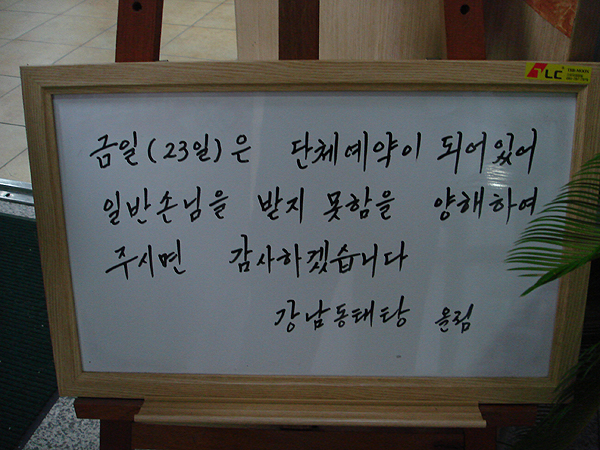 LC
금일(23일)은 단체예약이 되어있어
일반손님을 받지 못함을 양해하여
주시면 감사하겠습니다
강남동태탕 올림